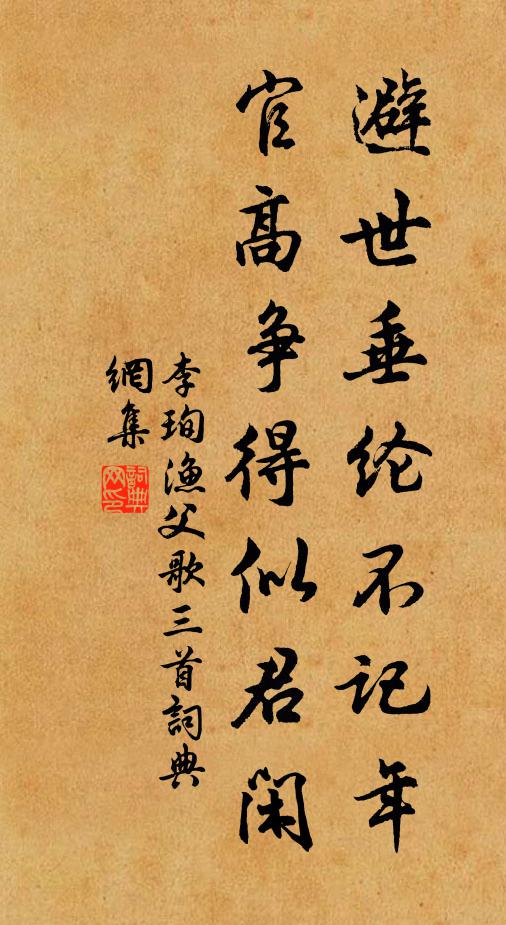 避世垂纶不记年
官高争得似君闲
李珣渔父歌三首詞典
網集
詞典网印